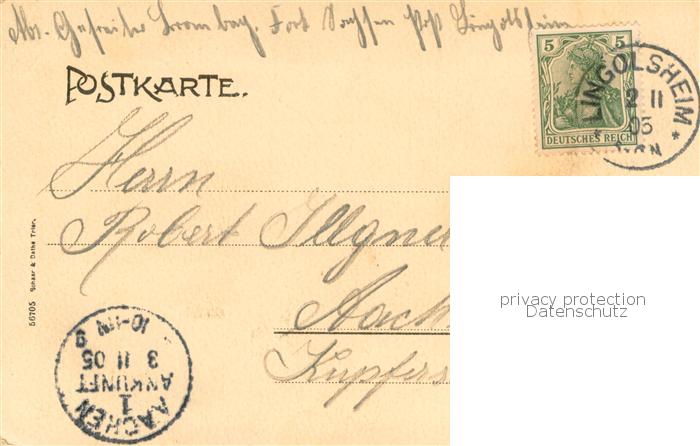 Abs. Gefreiter Brombay. Fort Sachsen Post Lingolsheim
POSTKARTE.
5 5
DEUTSCHES REICH
LINGOLSHEIM
2 11
05
Herrn
Robert Illgner
Aach
Kupfers
privacy protection
Datenschutz
56705 Schaar & Dathe Trier.
AACHEN
1
ANKUNFT
3 11 05
10-11N